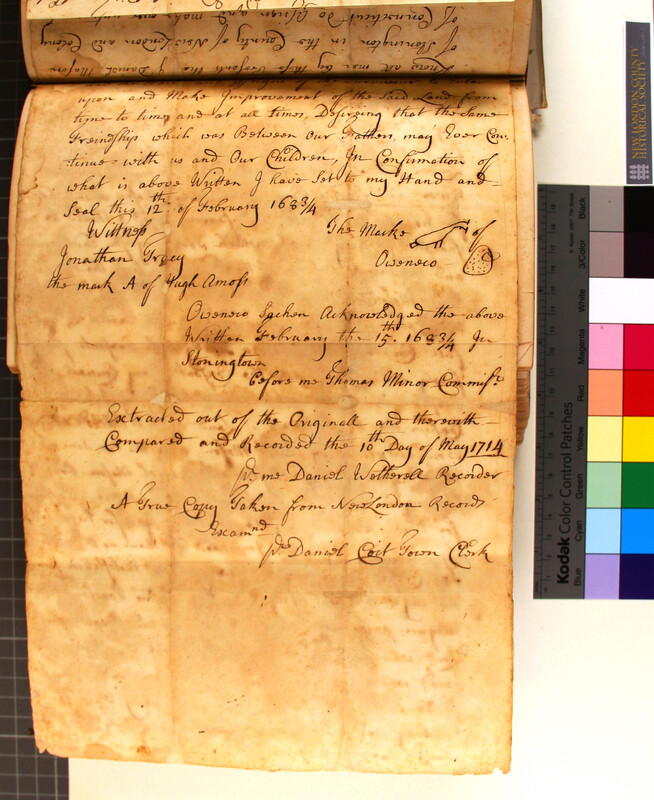 Know all men by these Presents that I Daniel Mason
of Stonington in the County of New London and Colony
of Connecticut Do
upon and Make Improvement of the said Land from
time to time and at all times, Desireing that the same
Freindship which was Between Our Fathers, may Ever Con:
tinue with us and Our Children, In Confirmation of
what is above Written I have Set to my Hand and
Seal this 12th of February 1683/4
Wittness
The Marke of
Jonathan Tracy
Oweneco
the mark A of Hugh Amoss
Oweneco Sachem Acknowledged the above
Written February the 15th. 1683/4 In
Stoningtown
before me Thomas Minor Commisr.
Extracted out of the Originall and therewith
Compared and Recorded the 10th Day of May 1714
Pr. me Daniel Wetherell Recorder
A True Copy Taken from New London Records
Examnd
Pr. Daniel Coit Town Clerk
NEW LONDON COUNTY
HISTORICAL SOCIETY
Kodak Color Control Patches
Blue
Cyan
Green
Yellow
Red
Magenta
White
3/Color
Black